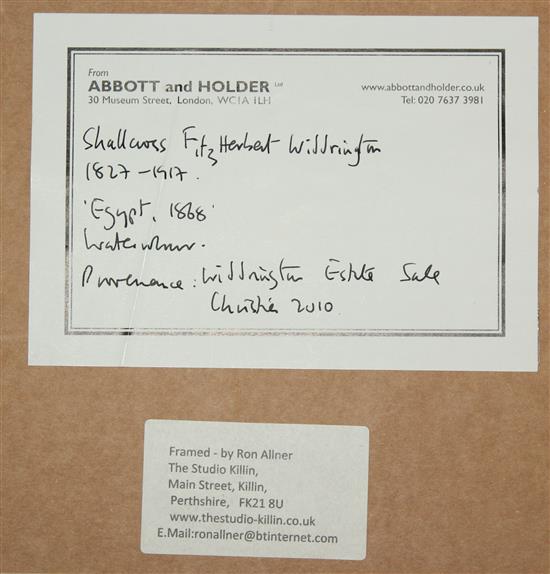 From
ABBOTT and HOLDER Ltd
30 Museum Street, London, WC1A 1LH
www.abbottandholder.co.uk
Tel: 020 7637 3981
Shallcross FitzHerbert Widdrington
1827-1917.
'Egypt, 1868'
Watercolour.
Provenance: Widdrington Estate Sale
Christies 2010.
Framed - by Ron Allner
The Studio Killin,
Main Street, Killin,
Perthshire, FK21 8U
www.thestudio-killin.co.uk
E.Mail:ronallner@btinternet.com